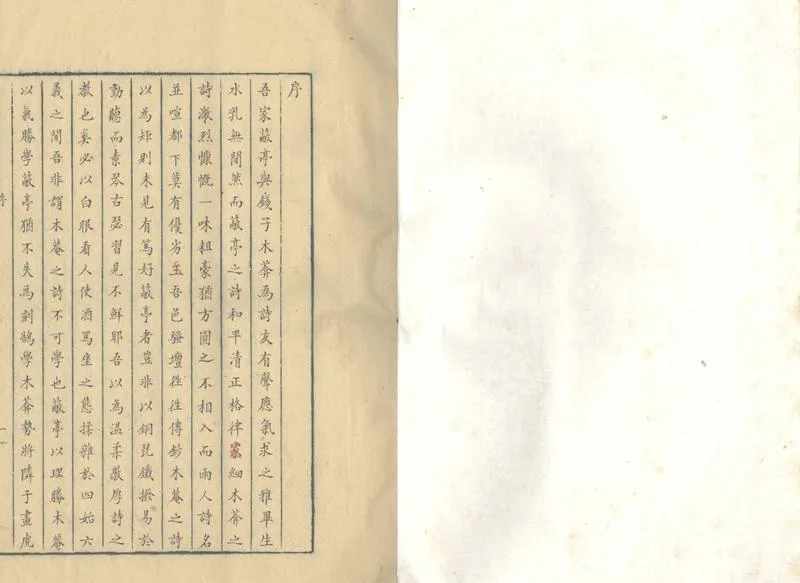 序
吾家蔽亭與錢子木菴為詩友有聲應氣求之雅畢生
水乳無間然而蔽亭之詩和平清正格律家細木菴之
詩激烈慷慨一味粗豪猶方圓之不相入而兩人詩名
並喧都下莫有優劣至吾邑騷壇徃徃傳鈔木菴之詩
以為矩則未見有篤好蔽亭者豈非以銅琵鐵撥易於
動聽而素琴古瑟習見不鮮耶吾以為溫柔敦厚詩之
教也奚必以白眼看人使酒罵坐之態揉雜於四始六
義之間吾非謂木菴之詩不可學也蔽亭以理勝木菴
以氣勝學蔽亭猶不失為刻鵠學木菴勢將隣于畫虎
序